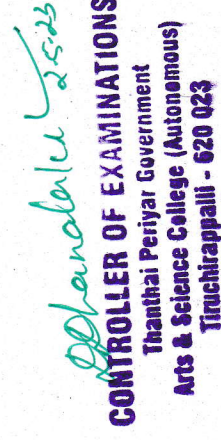 2-5-25
CONTROLLER OF EXAMINATIONS
Thanthai Periyar Government
Arts & Science College (Autonomous)
Tiruchirappalli - 620 023